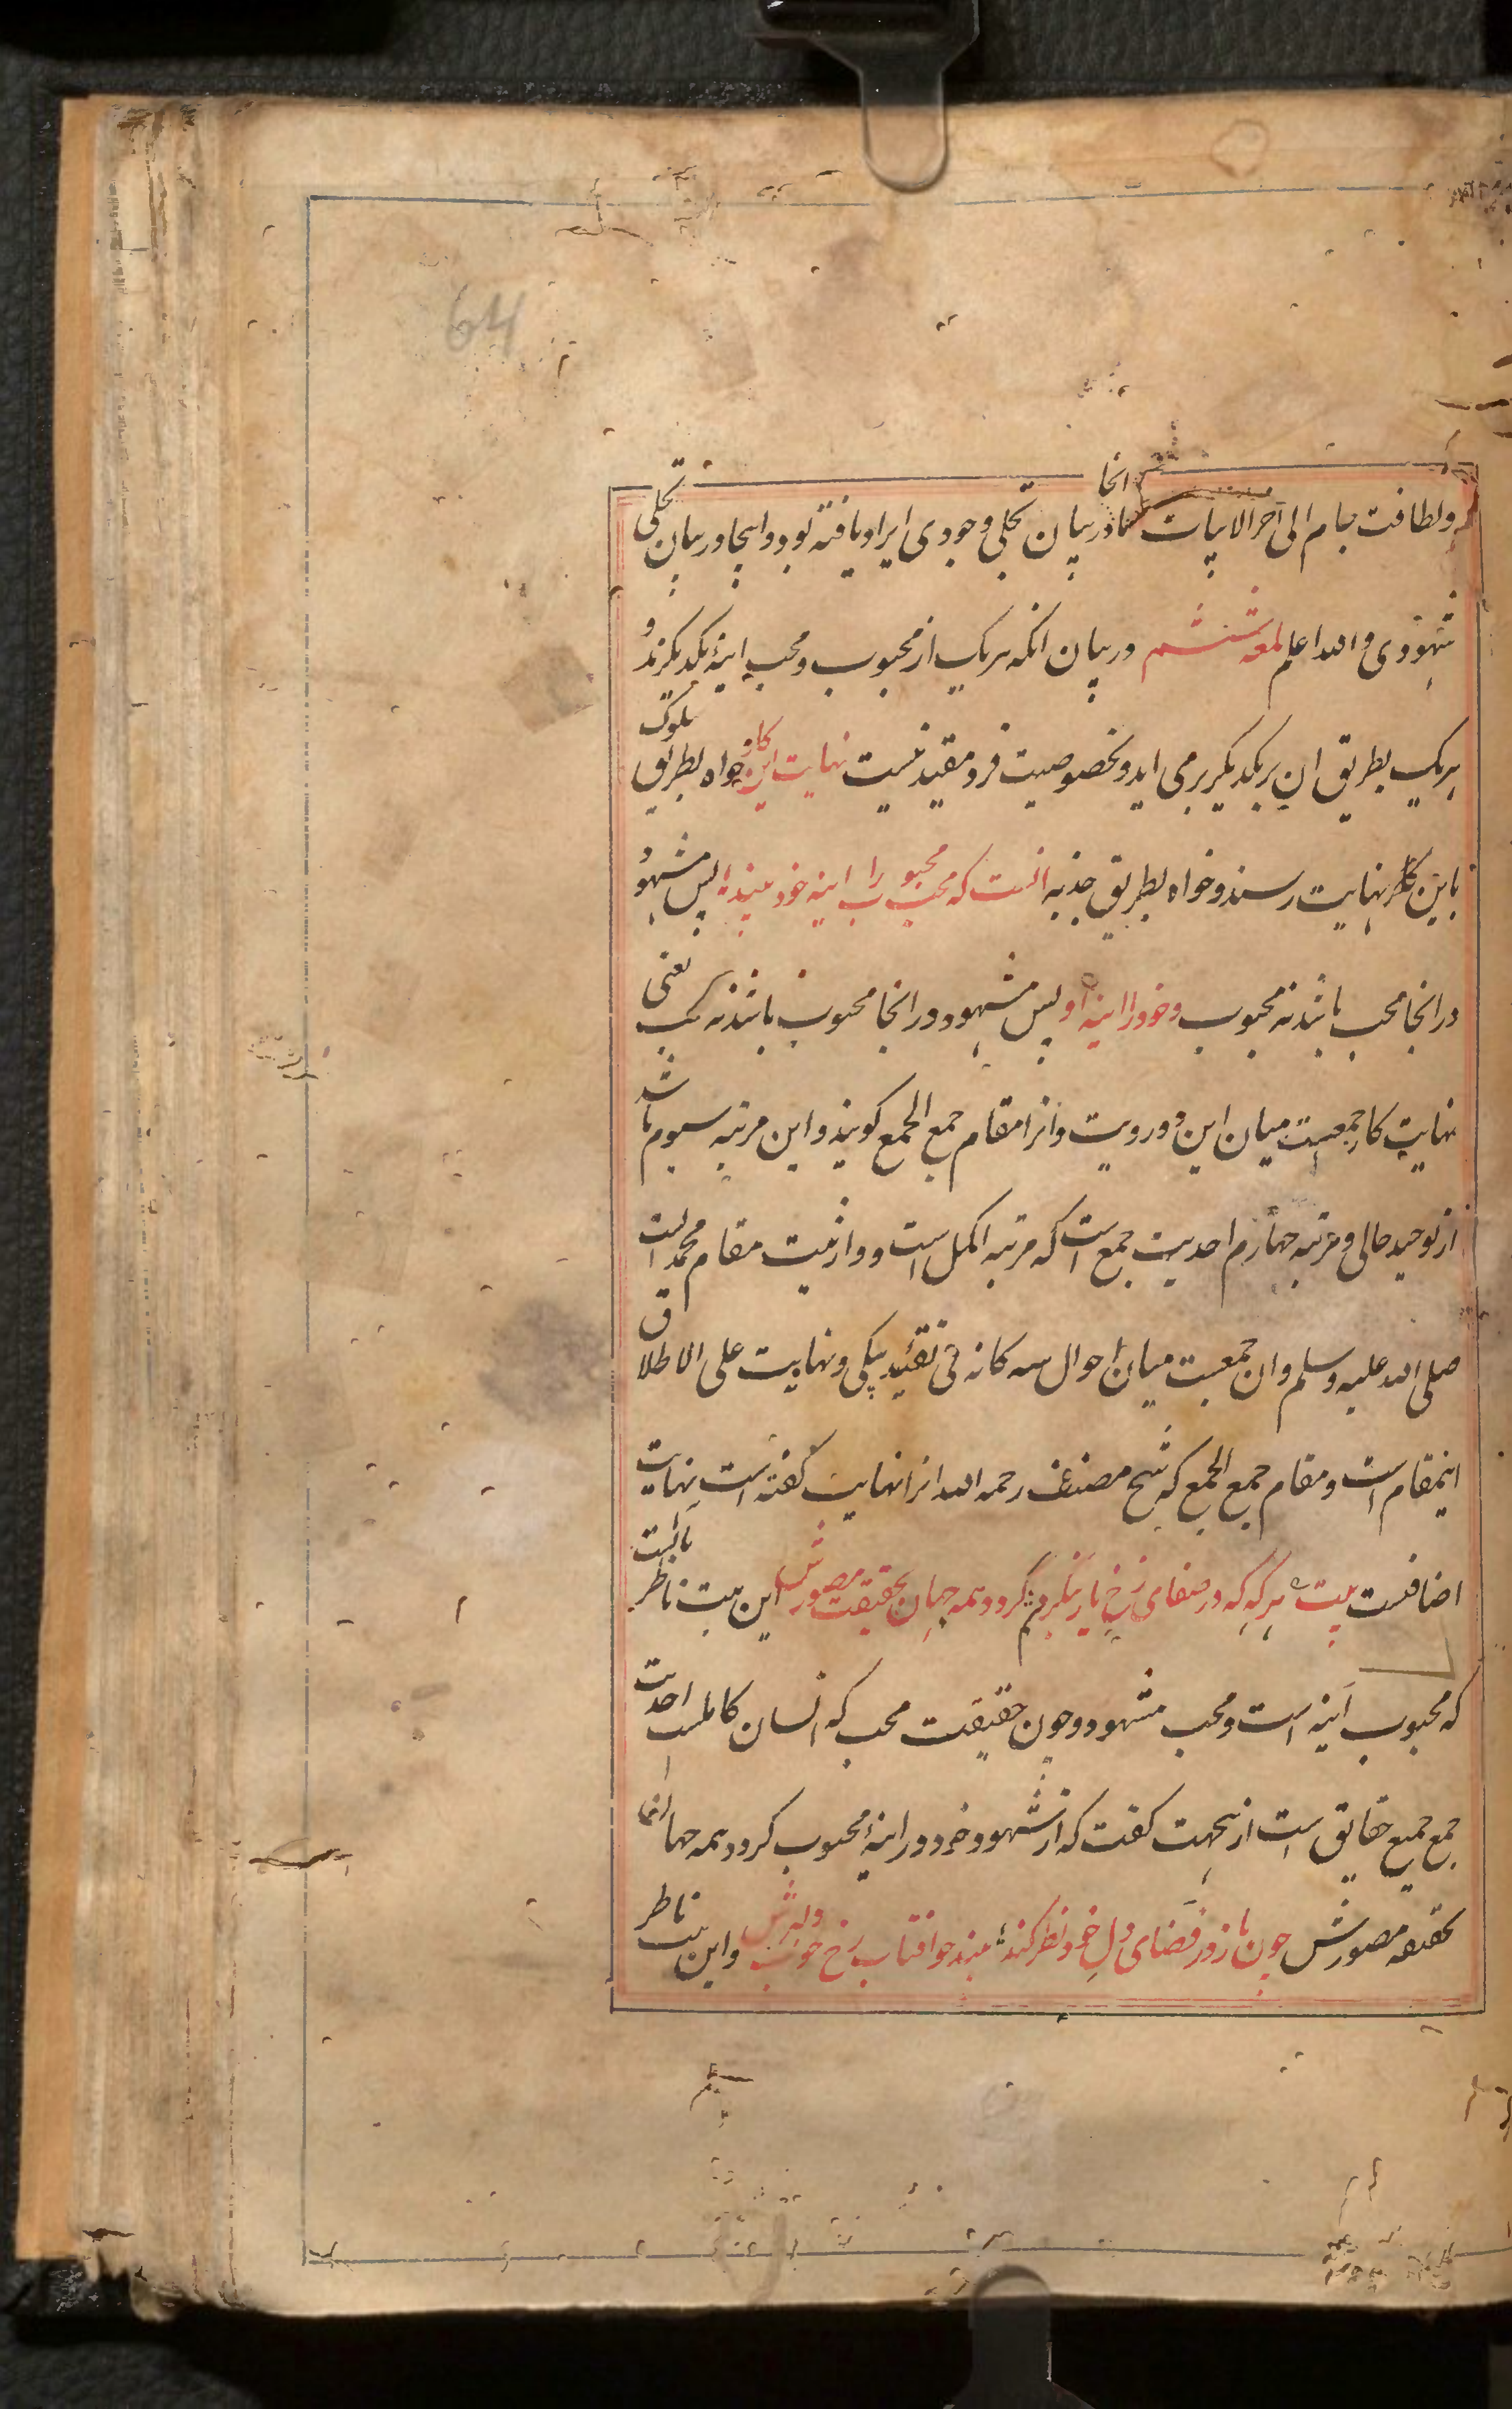 64
ولطافت جام الی آخر الابیات انجا در بیان تجلی وجودی ایراد یافته بود و اینجا در بیان تجلی
شهودی و الله اعلم لمعه ششم در بیان انکه هریک از محبوب و محب اینهٔ یکدیکرند و
هریک بطریق ان بر یکدیکر برمی اید و بخصوصیت فرد مقید نیست نهایت این کار خواه بطریق سلوک
باین کار بنهایت رسند و خواه بطریق جذبه انست که محب محبوب را اینه خود بیند پس مشهود
در انجا محب باشد نه محبوب و خود را اینهٔ او پس مشهود در انجا محبوب باشد نه محب یعنی
نهایت کار جمعیت میان این دو رویت و انرا مقام جمع الجمع کویند و این مرتبه سیوم باشد
از توحید حالی و مرتبه چهارم احدیت جمع است که مرتبه اکمل است و وارثیت مقام محمد است
صلی الله علیه وسلم و ان جمعیت میان احوال سه کانه فی تقیید بیکی و نهایت علی الاطلاق
اینمقام است و مقام جمع الجمع که شیخ مصنف رحمه الله انرا نهایت کفته است نهایت
اضافیست بیت هر که که در صفای رخ یار بنکرم کردد همه جهان بحقیقت مصورش این بیت ناظر بانست
که محبوب آینه است و محب مشهود و چون حقیقت محب که انسان کاملست احدیت
جمع جمیع حقایق است ازینجهت کفت که از شهود خود در اینهٔ محبوب کردد همه جهان
بحقیقه مصورش چون باز در فضای دل خود نظر کند بیند چو افتاب رخ خوب دلبرش و این بیت ناظر